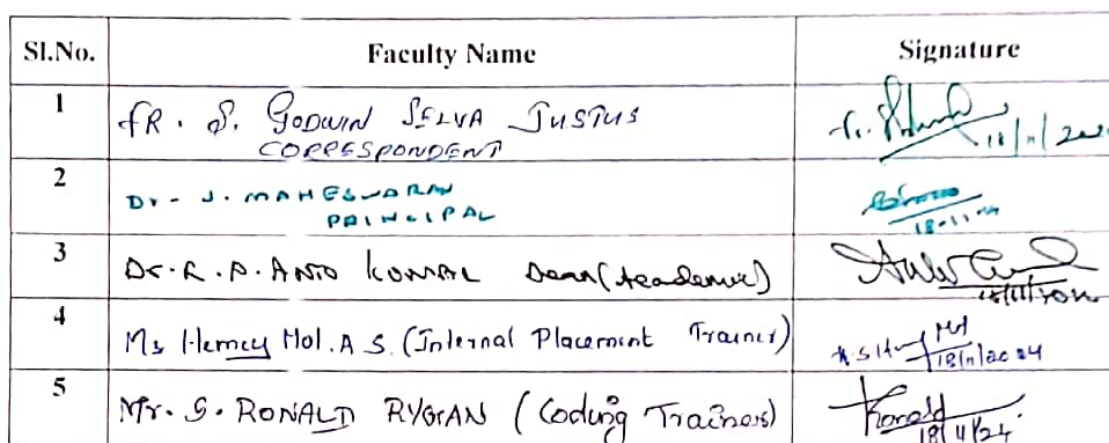 Sl.No. Faculty Name Signature
1 FR. S. GODWIN SELVA JUSTUS
CORRESPONDENT
18/11/202
2 Dr. J. MAHESWARAN
PRINCIPAL
18-11-24
3 Dr. R. P. ANTO KUMAR Dean (Academic)
18/11/2024
4 Ms Hemcy Mol. A S. (Internal Placement Trainer)
18/11/2024
5 Mr. S. RONALD RYGAN (Coding Trainers)
Ronald
18/11/24.